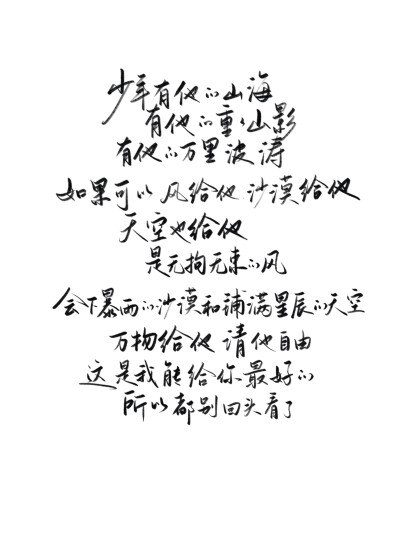 少年有他的山海
有他的重重山影
有他的万里波涛
如果可以 风给他 沙漠给他
天空也给他
是无拘无束的风
会下暴雨的沙漠和铺满星辰的天空
万物给他 请他自由
这是我能给你最好的
所以都别回头看了